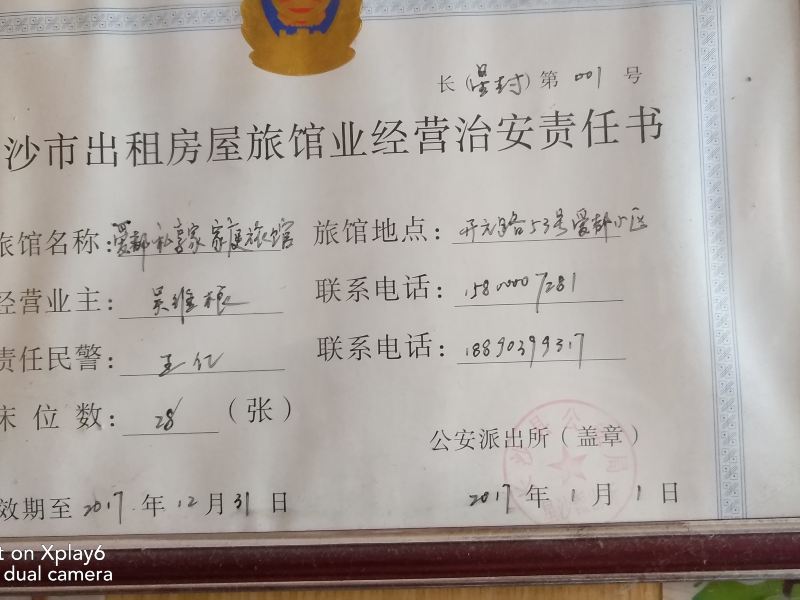 长(星封)第001号
沙市出租房屋旅馆业经营治安责任书
旅馆名称:爱都私享家家庭旅馆 旅馆地点:开元路53号爱都小区
经营业主:吴维根 联系电话:15800007281
责任民警:王仁 联系电话:18890399317
床位数:28(张)
公安派出所(盖章)
效期至2017年12月31日 2017年1月1日
on Xplay6
dual camera